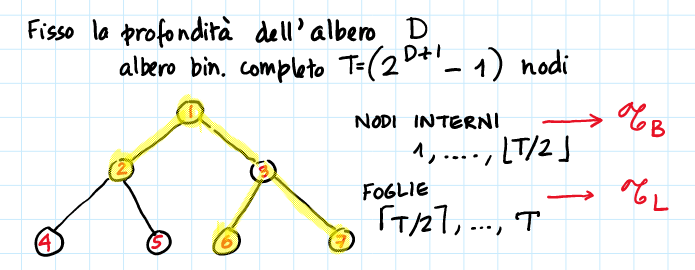 Fisso la profondità dell'albero D
albero bin. completo T=(2^{D+1} - 1) nodi
1
2
3
4
5
6
7
NODI INTERNI → τ_B
1, ...., ⌊T/2⌋
FOGLIE → τ_L
⌈T/2⌉, ..., T